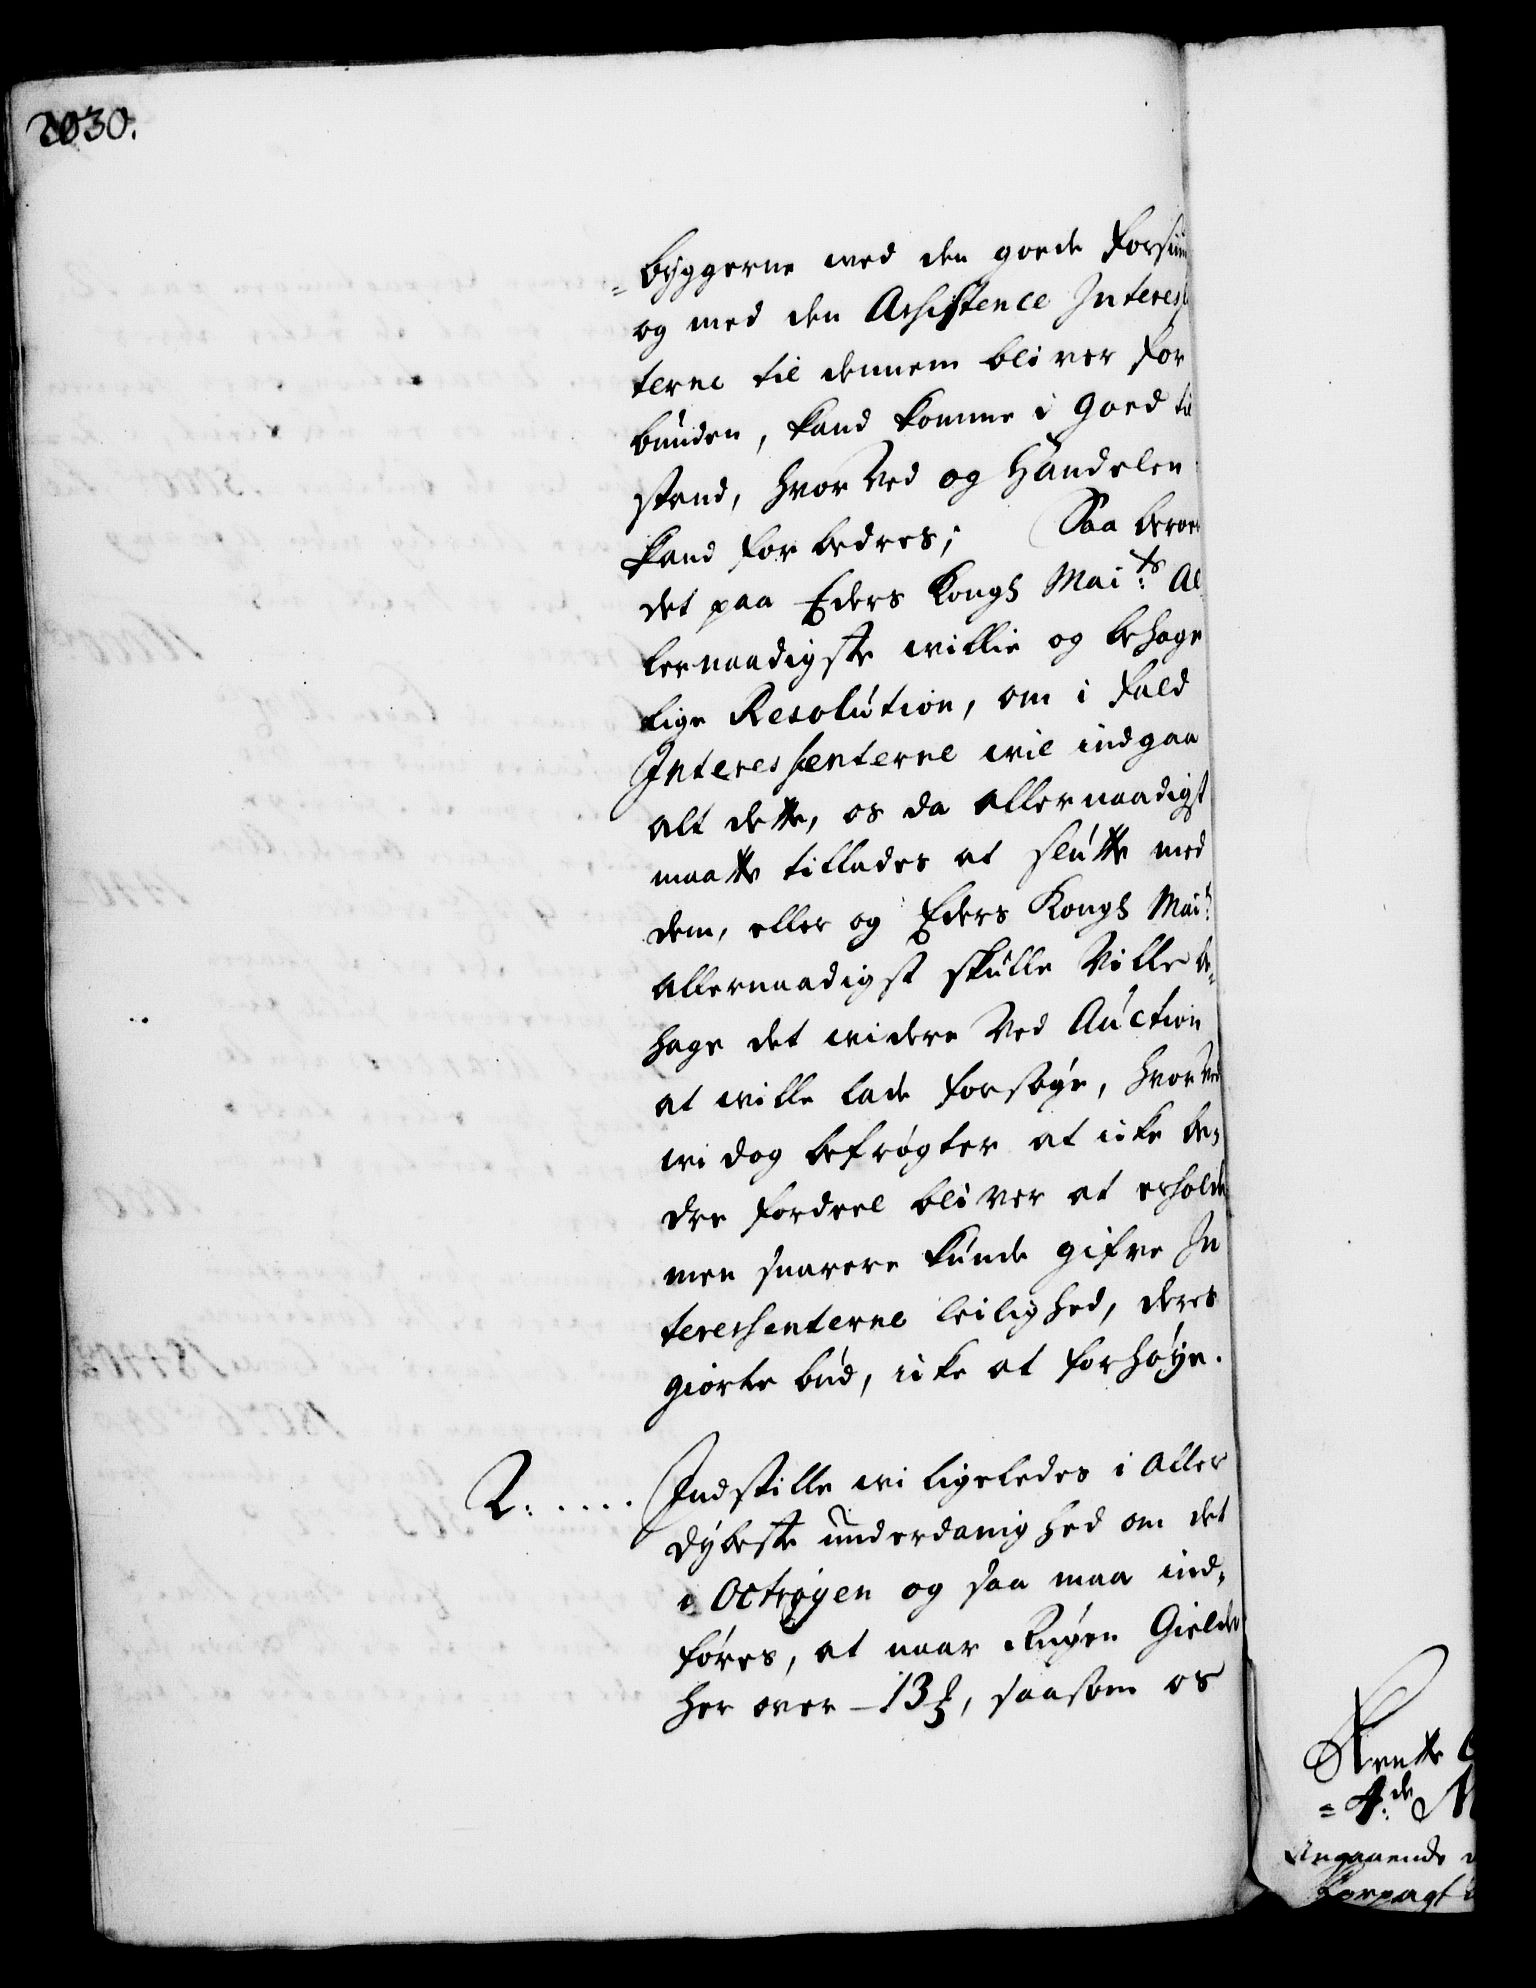 2030.
= byggerne med den goede Forsiun
og med den Assistence Interes
terne til dennem bliver for
bunden, kand komme i goed til
stand, hvorved og Handelen
kand forbedres; Saa beroer
det paa Eders Kongl Mai:ts Al
lernaadigste willie og behage
lige Resolution, om i fald
Interessenterne wil indgaa
alt dette, os da allernaadigst
maatte tillades at slutte med
dem, eller og Eders Kongl Mait:
allernaadigst skulle Ville be=
hage det widere ved Auction
at wille lade forsøge, hvorved
wi dog befrøgter at icke be=
dre fordeel bliver at erholde
men snarere kunde gifve In
teressenterne leilighed, deres
giorte bud, icke at forhøye.
2: .... Indstille wi ligeledes i aller
dybeste underdanighed om det
i Octrøyen og saa maa ind=
føres, at naar Rugen Gielder
her over - 13 ß, saasom os
Rentte
= 4:de M
Angaaende
forpagt